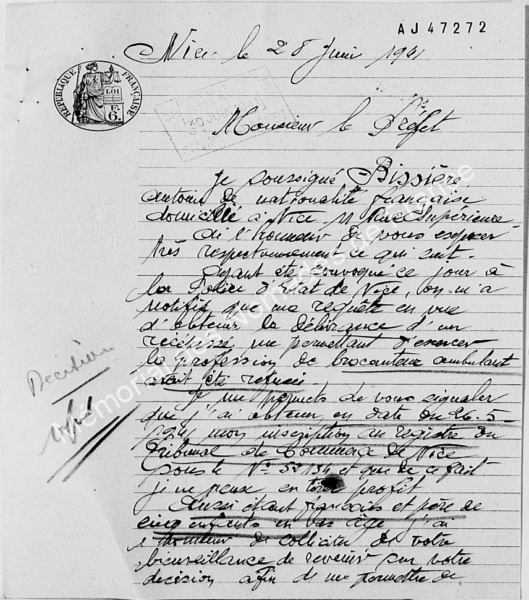 AJ47272
Nice le 28 Juin 1941
RÉPUBLIQUE FRANÇAISE
LOI
6F.
Monsieur le Préfet
Je soussigné Bissière
Antoine de nationalité française
domicilié à Nice 11 Rue Supérieure
ai l'honneur de vous exposer
très respectueusement ce qui suit.
Ayant été convoqué ce jour à
la Police d'Etat de Nice, on m'a
notifié que ma requête en vue
d'obtenir la délivrance d'un
récépissé, me permettant d'exercer
la profession de brocanteur ambulant
avait été refusée.
Je me permets de vous signaler
que j'ai obtenu en date du 26-5-
1941 mon inscription au registre du
Tribunal de Commerce de Nice
sous le N° 52134 et que de ce fait
je ne peux en tirer profit.
Aussi étant français et père de
cinq enfants en bas âge j'ai
l'honneur de solliciter de votre
bienveillance de revenir sur votre
décision afin de me permettre de
Décision